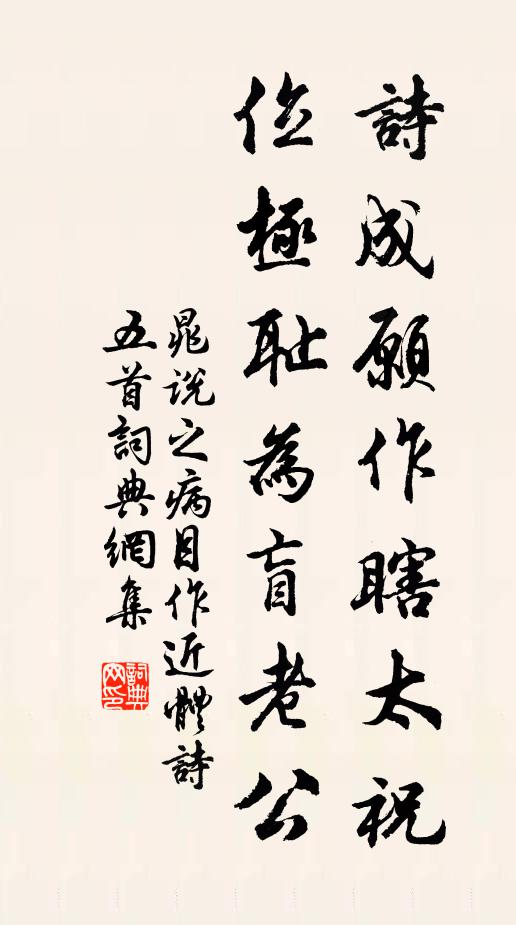 詩成願作瞎太祝
位極恥為盲老公
晁說之病目作近體詩
五首詞典網集
詞典
网印